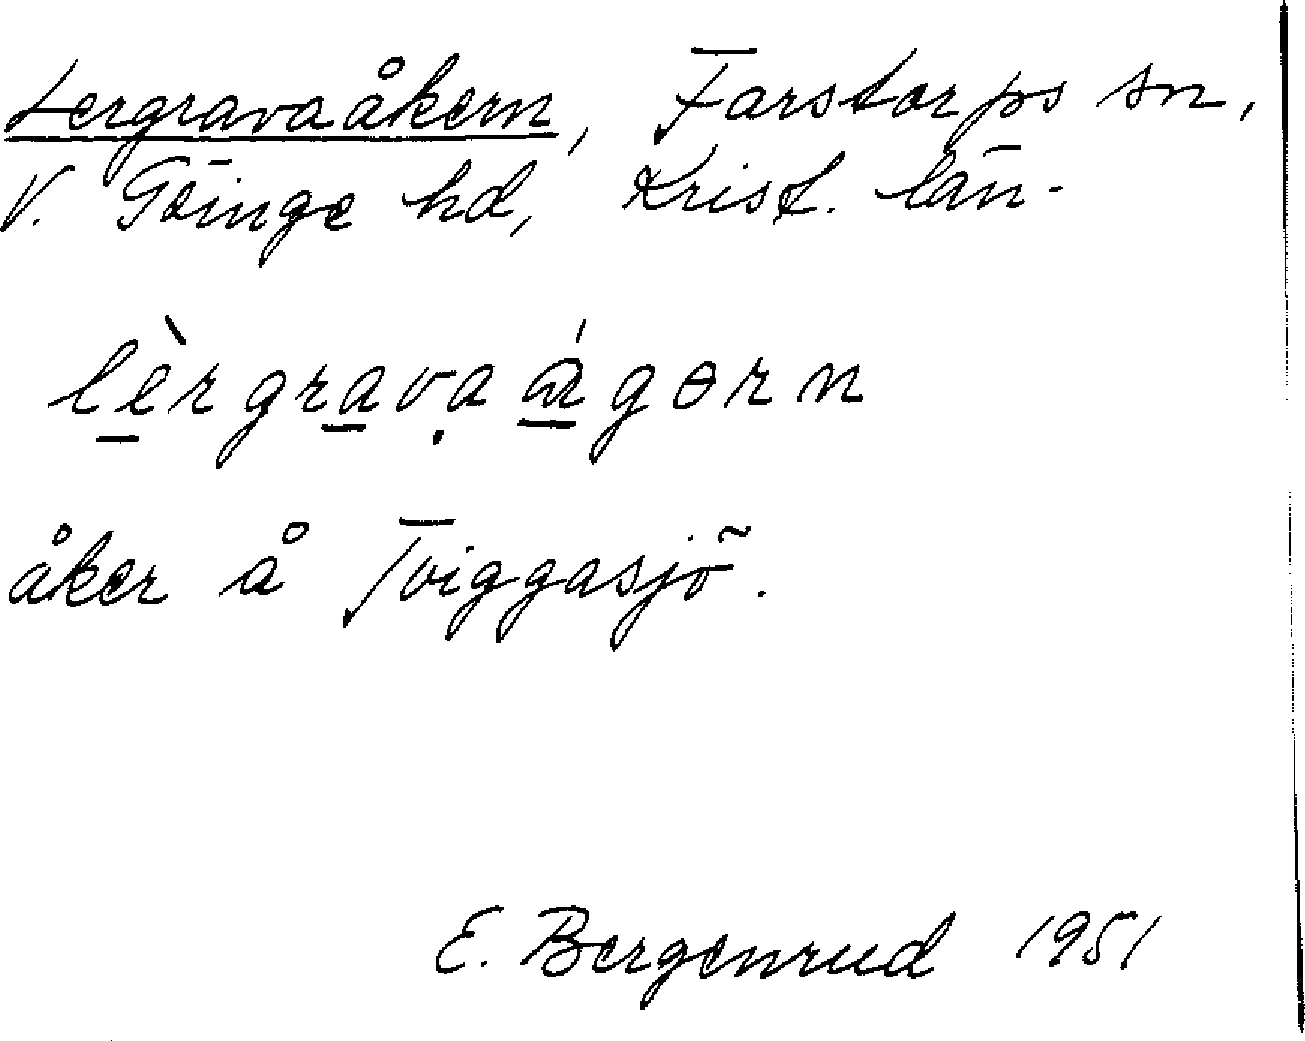 Lergravaåkern, Farstorps sn,
V. Göinge hd, Krist. län.
lèrgravaágərn
åker å Tviggasjö.
E. Bergenrud 1951